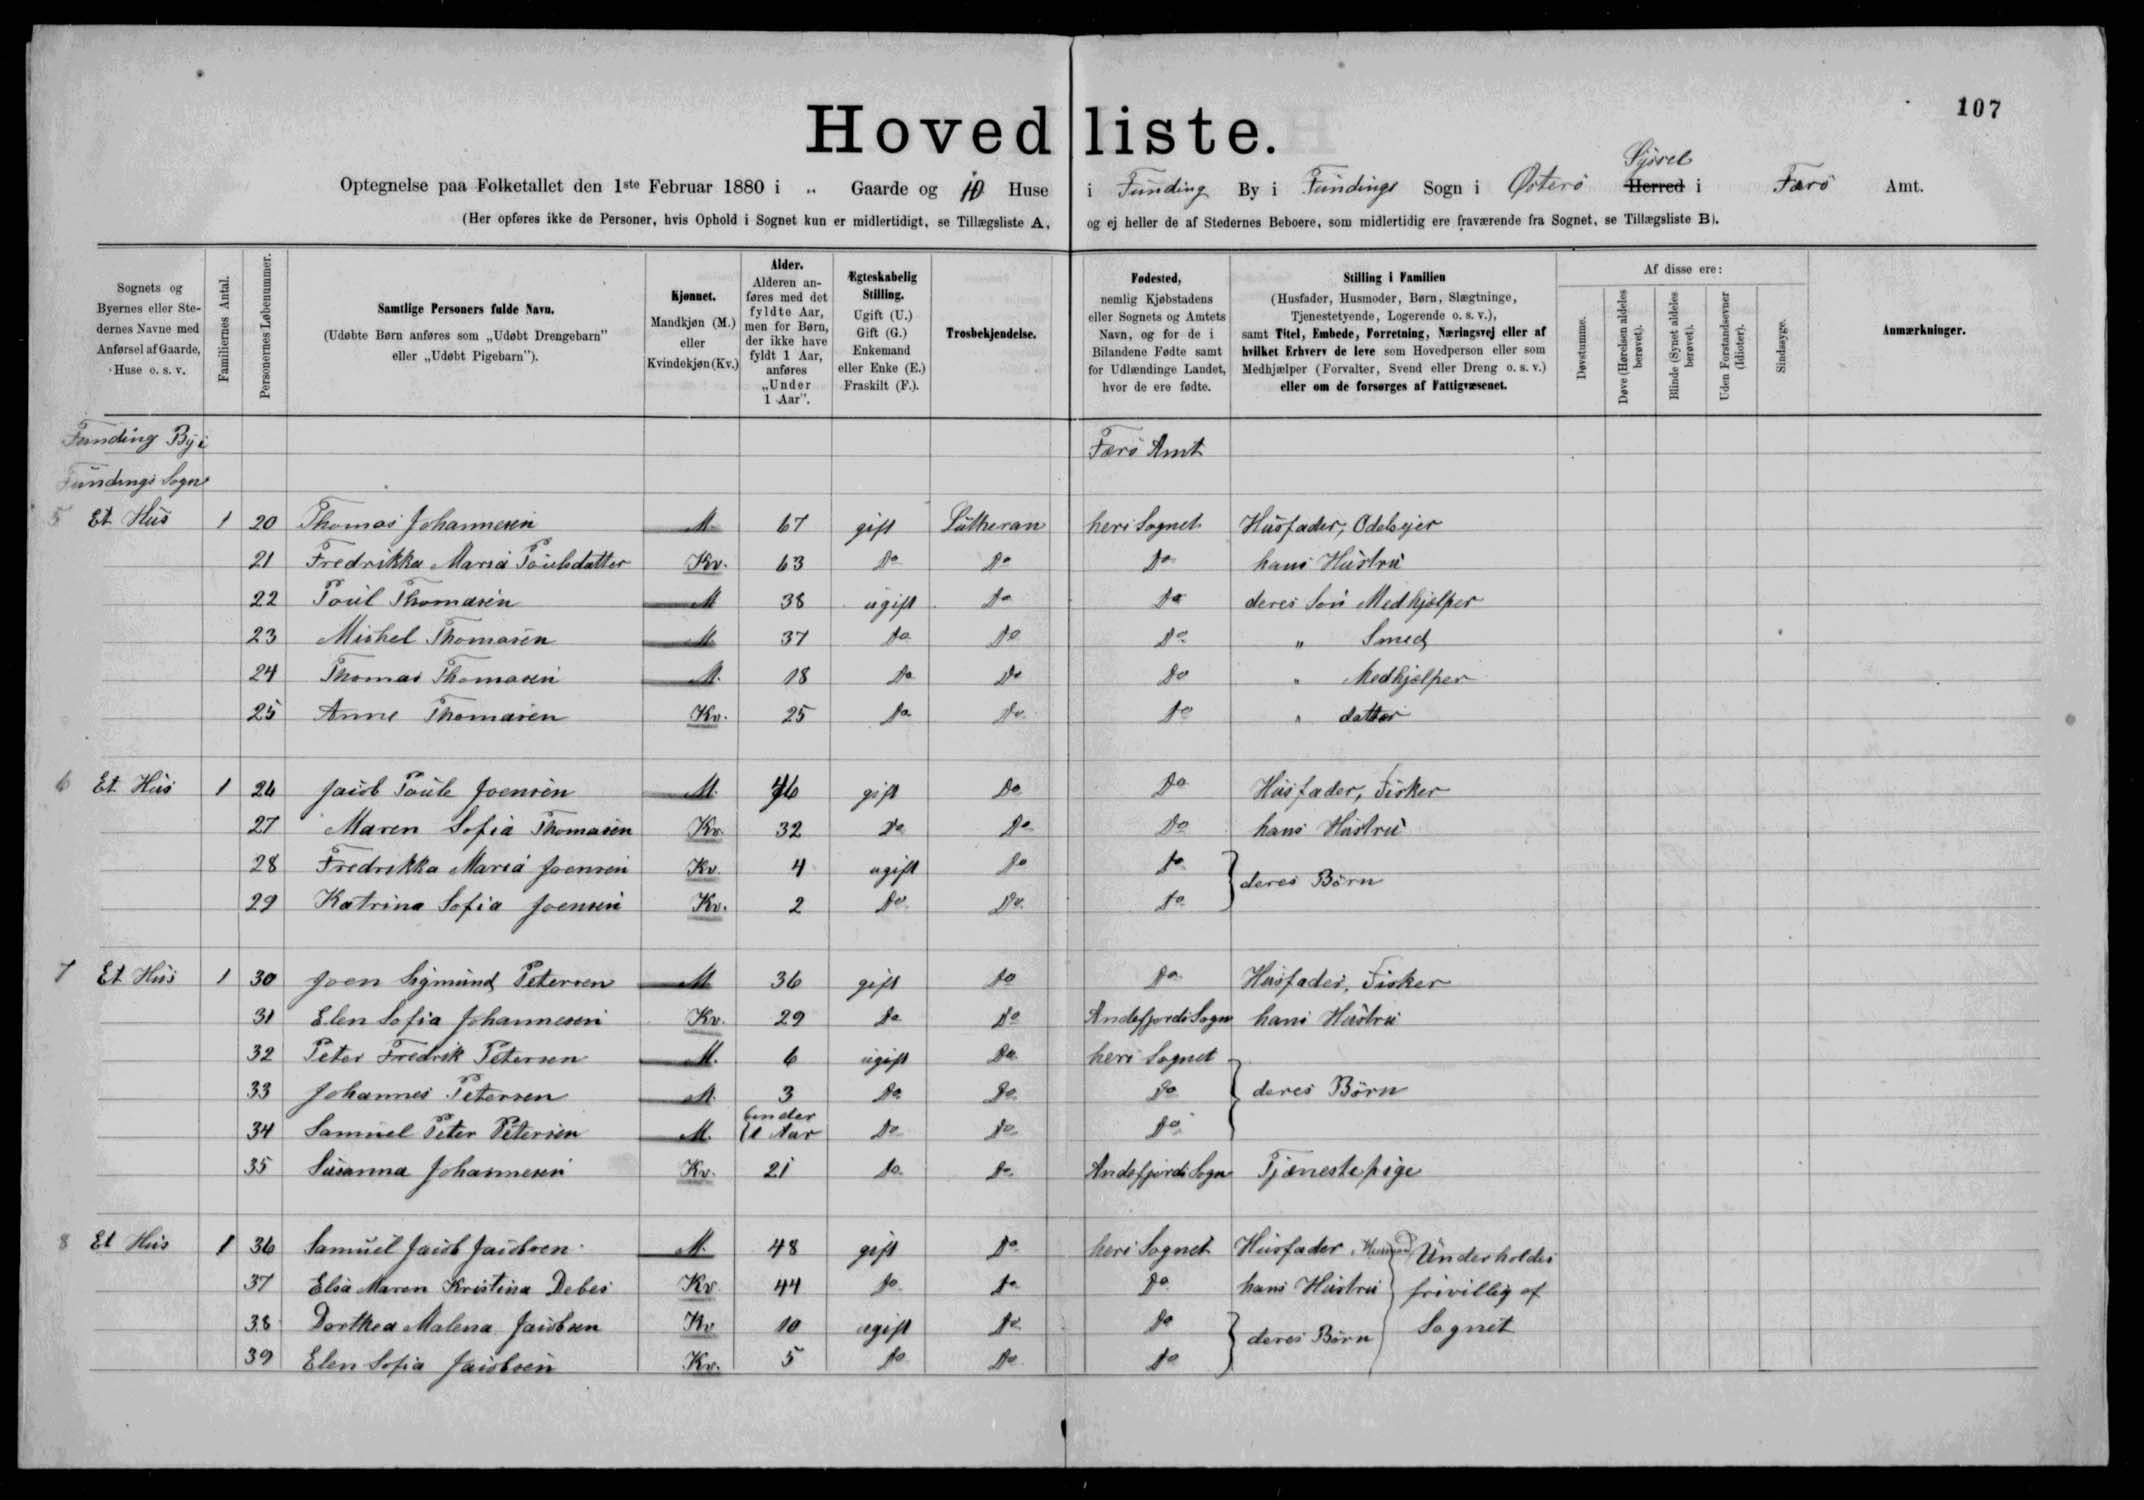 107
Hovedliste.
Optegnelse paa Folketallet den 1ste Februar 1880 i „ Gaarde og 10 Huse i Funding By i Fundings Sogn i Østerö Herred Syssel i Færö Amt.
(Her opføres ikke de Personer, hvis Ophold i Sognet kun er midlertidigt, se Tillægsliste A, og ej heller de af Stedernes Beboere, som midlertidig ere fraværende fra Sognet, se Tillægsliste B).
Sognets og Byernes eller Stedernes Navne med Anførsel af Gaarde, Huse o. s. v.
Familiernes Antal.
Personernes Løbenummer.
Samtlige Personers fulde Navn.
(Udøbte Børn anføres som „Udøbt Drengebarn" eller „Udøbt Pigebarn").
Kjønnet.
Mandkjøn (M.) eller Kvindekjøn (Kv.)
Alder.
Alderen anføres med det fyldte Aar, men for Børn, der ikke have fyldt 1 Aar, anføres „Under 1 Aar".
Ægteskabelig Stilling.
Ugift (U.) Gift (G.) Enkemand eller Enke (E.) Fraskilt (F.).
Trosbekjendelse.
Fødested,
nemlig Kjøbstadens eller Sognets og Amtets Navn, og for de i Bilandene Fødte samt for Udlændinge Landet, hvor de ere fødte.
Stilling i Familien
(Husfader, Husmoder, Børn, Slægtninge, Tjenestetyende, Logerende o. s. v.),
samt Titel, Embede, Forretning, Næringsvej eller af hvilket Erhverv de leve som Hovedperson eller som Medhjælper (Forvalter, Svend eller Dreng o. s. v.) eller om de forsørges af Fattigvæsenet.
Af disse ere:
Døvstumme.
Døve (Hørelsen aldeles berøvet).
Blinde (Synet aldeles berøvet).
Uden Forstandsevner (Idioter).
Sindssyge.
Anmærkninger.
Funding By i Færö Amt
Fundings Sogn
5 Et Hus 1 20 Thomas Johannesen M. 67 gift Lutheran heri Sognet Husfader, Odelsejer
21 Fredrikka Maria Poulsdatter Kv. 63 Do Do Do hans Hustru
22 Poul Thomasen M 38 ugift Do Do deres Sön Medhjælper
23 Mishel Thomasen M 37 Do Do Do „ Smed
24 Thomas Thomasen M. 18 Do Do Do „ Medhjælper
25 Anne Thomasen Kv. 25 Do Do Do „ datter
6 Et Hus 1 26 Jacob Poule Joensen M. 46 gift Do Do Husfader, Fisker
27 Maren Sofia Thomasen Kv. 32 Do Do Do hans Hustru
28 Fredrikka Maria Joensen Kv. 4 ugift Do Do
deres Börn
29 Katrina Sofia Joensen Kv. 2 Do Do Do
7 Et Hus 1 30 Joen Sigmund Petersen M 36 gift Do Do Husfader, Fisker
31 Elen Sofia Johannesen Kv. 29 Do Do Andefjords Sogn hans Hustru
32 Peter Fredrik Petersen M. 6 ugift Do heri Sognet
33 Johannes Petersen M. 3 Do Do Do deres Börn
34 Samuel Peter Petersen M. under 1 Aar Do Do Do
35 Susanna Johannesen Kv. 21 Do Do Andefjords Sogn Tjænestepige
8 Et Hus 1 36 Samuel Jacob Jacobsen M. 48 gift Do heri Sognet Husfader Underholdes
37 Elsa Maren Kristina Debes Kv 44 Do Do Do hans Hustru frivillig af
38 Dorthea Malena Jacobsen Kv 10 ugift Do Do deres Börn Sognet
39 Elen Sofia Jacobsen Kv. 5 Do Do Do